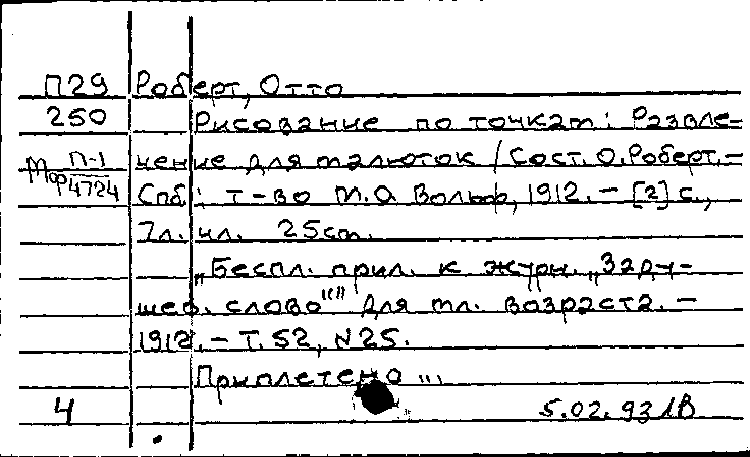 П29 Роберт, Отто
250 Рисование по точкам: Развле-
П-1
Мф 4724
чение для малюток / Сост. О. Роберт. –
Спб: т-во М.О Вольф, 1912. – [2] с.,
7л. ил. 25см.
„Беспл. прил. к журн. „Заду-
шев. слово"" для мл. возраста. –
1912. – Т. 52, N25.
Приплетено ...
4 5.02.93 ЛВ